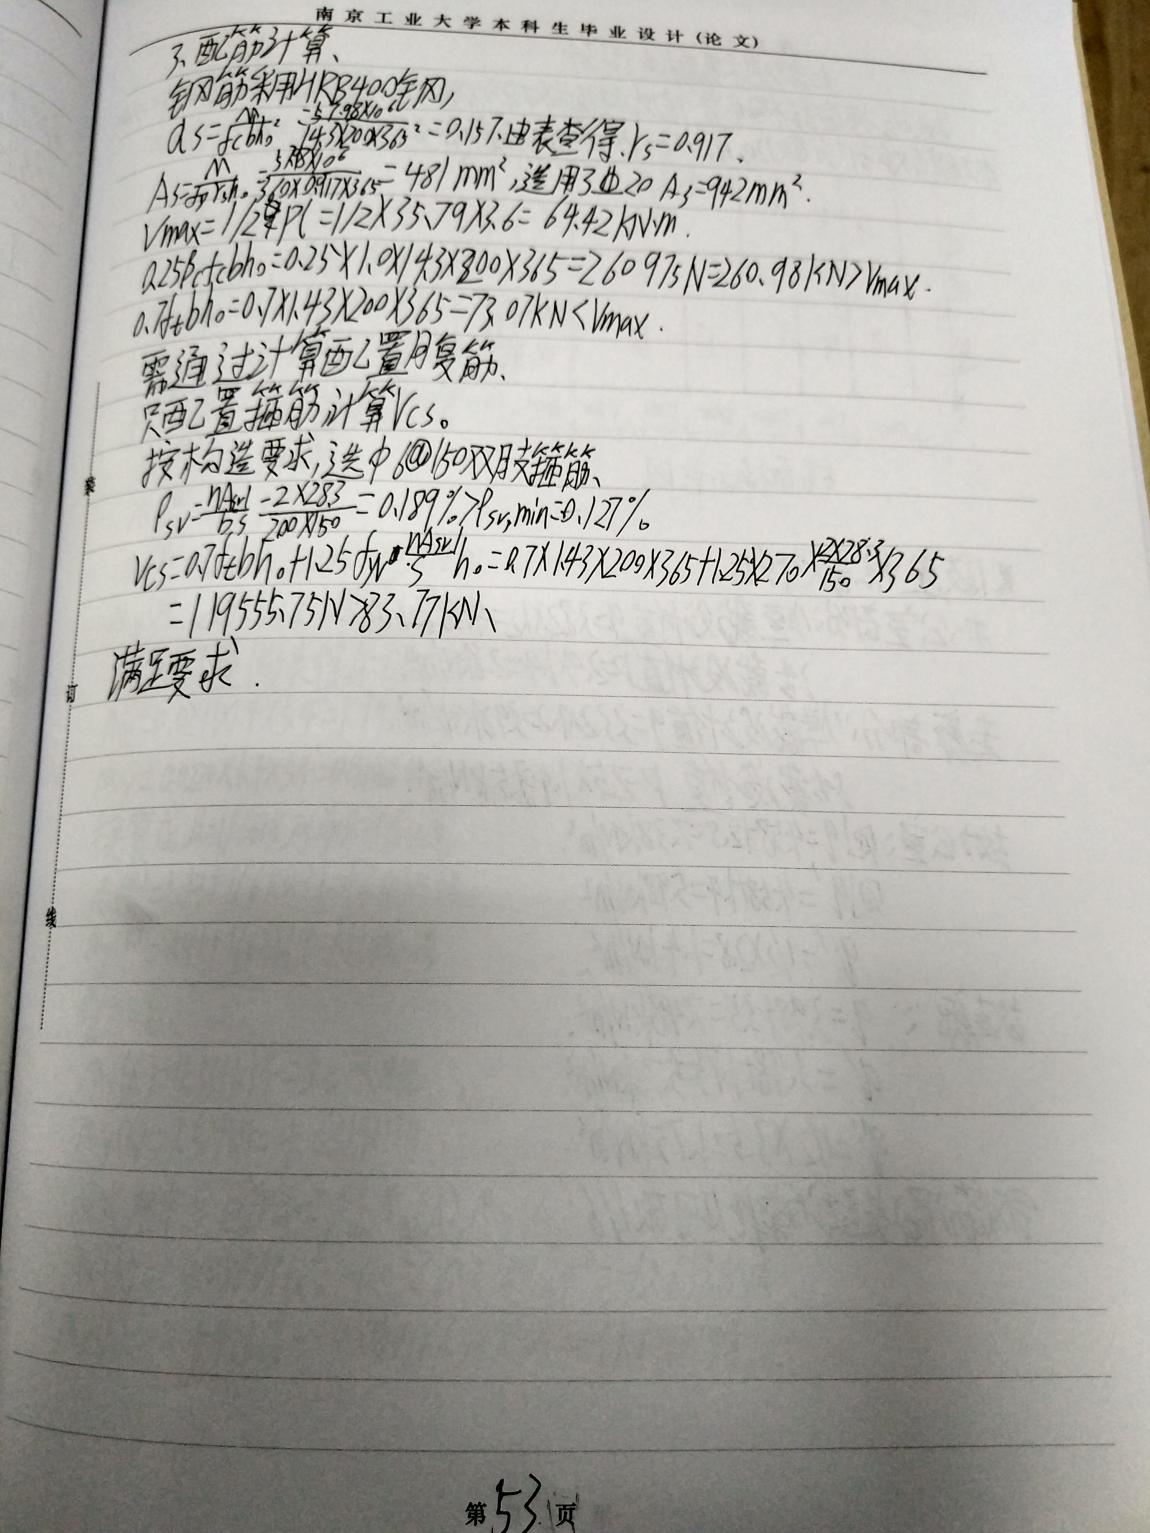 南京工业大学本科生毕业设计(论文)
3、配筋计算、
钢筋采用HRB400钢,
αs=M/fcbh₀²=57.98×10⁶/14.3×200×365²=0.157.由表查得.γs=0.917.
As=M/fyγsh₀=57.98×10⁶/360×0.917×365=481mm²,选用3⏀20 As=942mm².
Vmax=1/2Pl=1/2×35.79×3.6=64.42kN·m.
0.25βcfcbh₀=0.25×1.0×14.3×200×365=260975N=260.98kN>Vmax.
0.7ftbh₀=0.7×1.43×200×365=73.07kN<Vmax.
需通过计算配置腹筋、
只配置箍筋计算Vcs。
按构造要求,选ф6@150双肢箍筋、
ρsv=nAsv1/b.s=2×28.3/200×150=0.189%>ρsv,min=0.127%.
Vcs=0.7ftbh₀+1.25fyv·nAsv1/s h₀=0.7×1.43×200×365+1.25×270×2×28.3/150×365
=119555.75N>83.77kN、
满足要求.
装
订
线
第53页